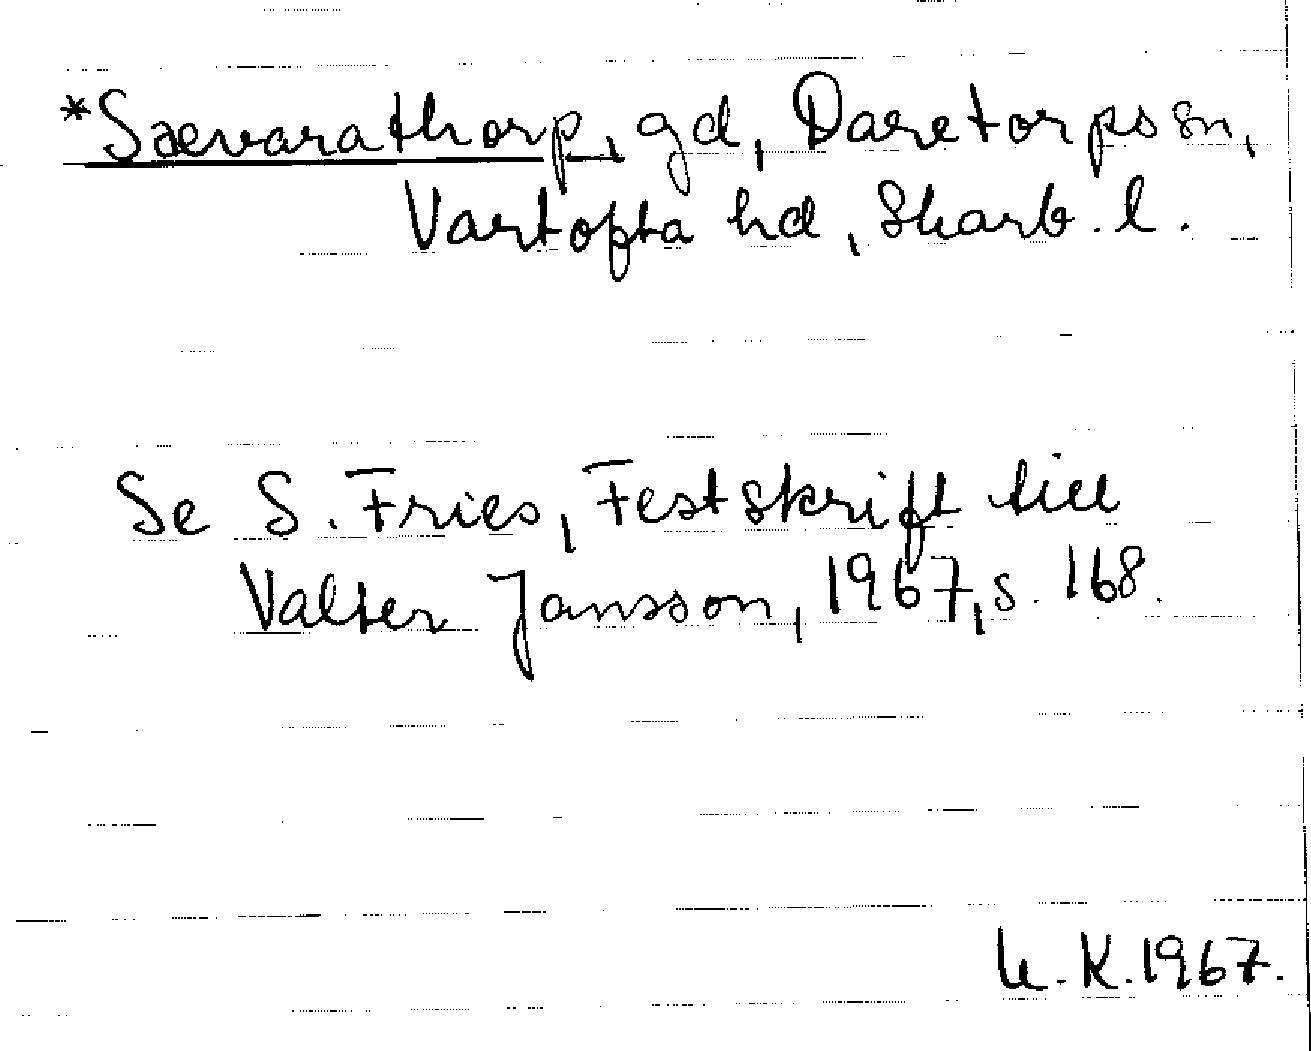 *Saevarathorp, gd, Daretorps sn,
Vartofta hd, Skarb. l.
Se S. Fries, Festskrift till
Valter Jansson, 1967, s. 168.
U.K. 1967.